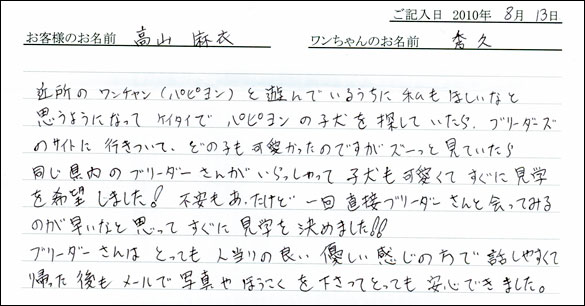 ご記入日 2010年 8月 13日
お客様のお名前 高山 麻衣 ワンちゃんのお名前 斉久
近所の ワンチャン(パピヨン)と 遊んでいるうちに 私も ほしいなと
思うようになって ケイタイで パピヨンの子犬を 探していたら、ブリーダーズ
のサイトに 行きついて、どの子も 可愛かったのですが ズーっと 見ていたら
同じ県内の ブリーダーさんが いらっしゃって 子犬も 可愛くて すぐに 見学
を希望しました! 不安もあったけど 一回 直接ブリーダーさんと会ってみる
のが早いなと 思って すぐに 見学を 決めました!!
ブリーダーさんは とっても 人当りの良い 優しい 感じの方で 話しやすくて
帰った後も メールで 写真や ほうこくを 下さってとっても 安心できました。